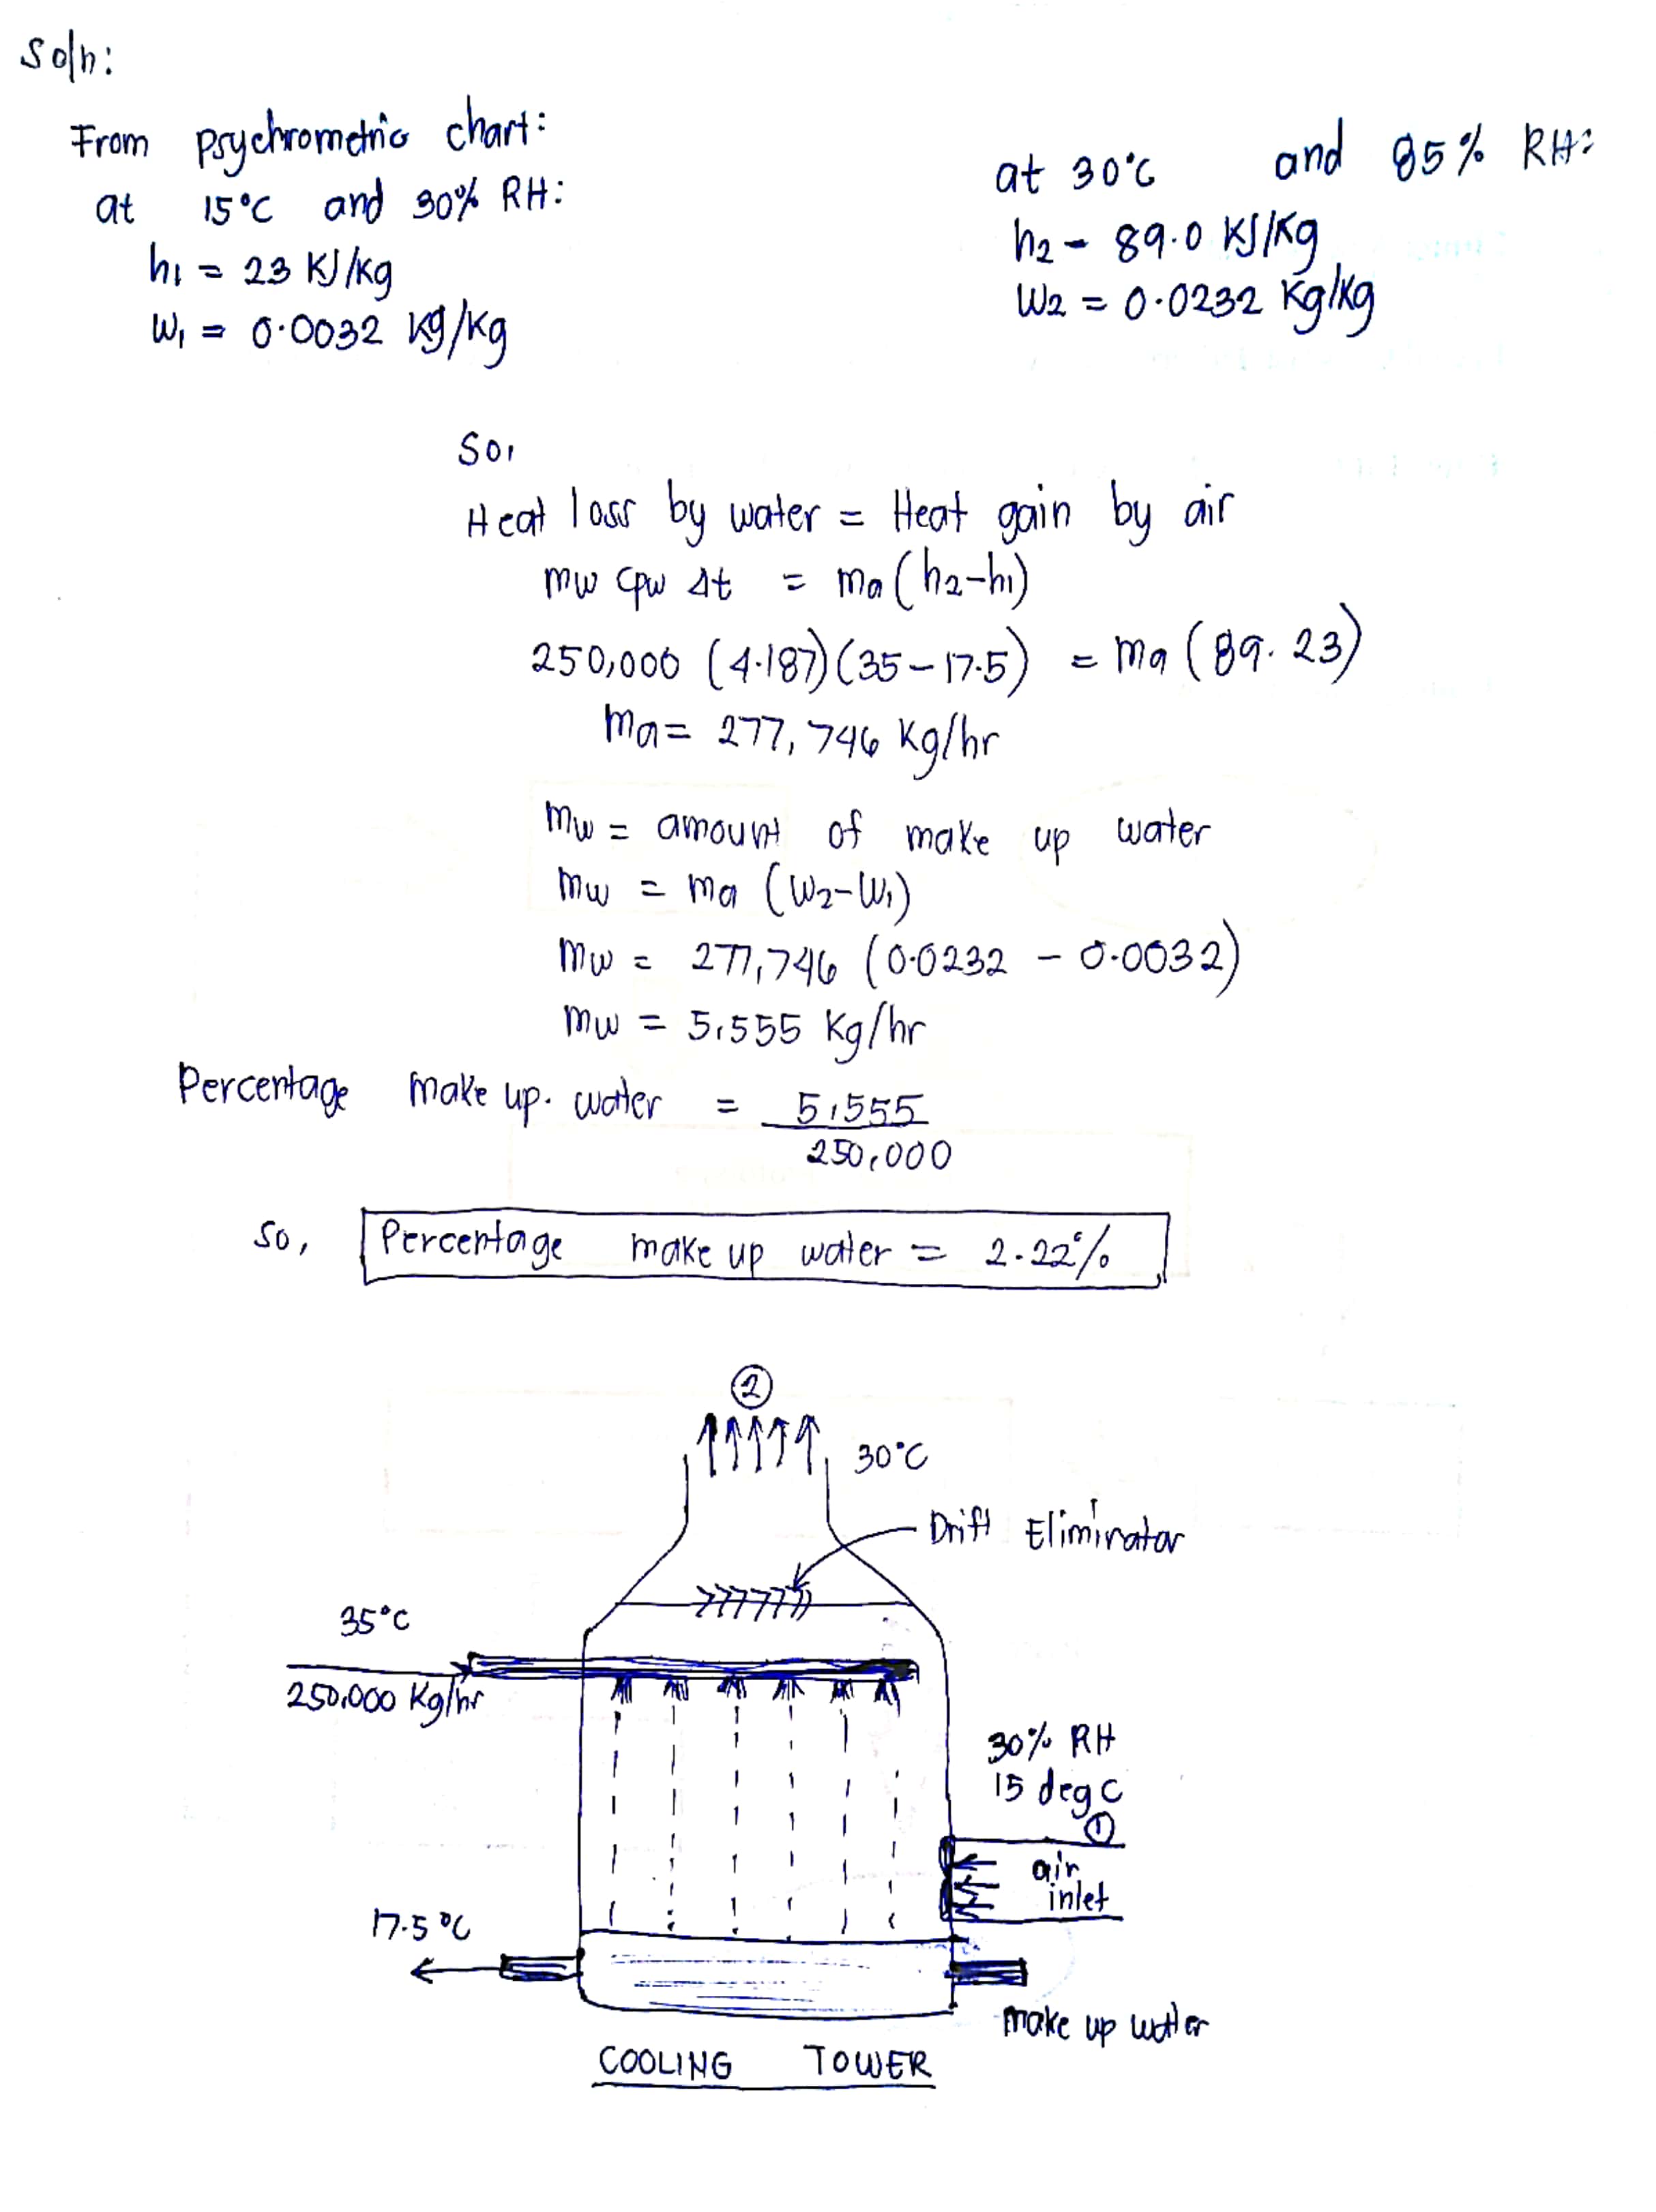 Soln:
From psychrometric chart:
at 15°C and 30% RH:
h1 = 23 KJ/Kg
W1 = 0.0032 Kg/Kg
at 30°C and 85% RH:
h2 - 89.0 KJ/Kg
W2 = 0.0232 Kg/Kg
So,
Heat loss by water = Heat gain by air
mw cpw Δt = ma (h2-h1)
250,000 (4.187)(35-17.5) = ma (89.23)
ma = 277,746 Kg/hr
mw = amount of make up water
mw = ma (W2-W1)
mw = 277,746 (0.0232 - 0.0032)
mw = 5,555 Kg/hr
Percentage make up. water = 5,555
250,000
So, Percentage make up water = 2.22%
2
30°C
Drift Eliminator
35°C
250,000 Kg/hr
30% RH
15 deg C
1
air
inlet
17.5°C
make up water
COOLING TOWER